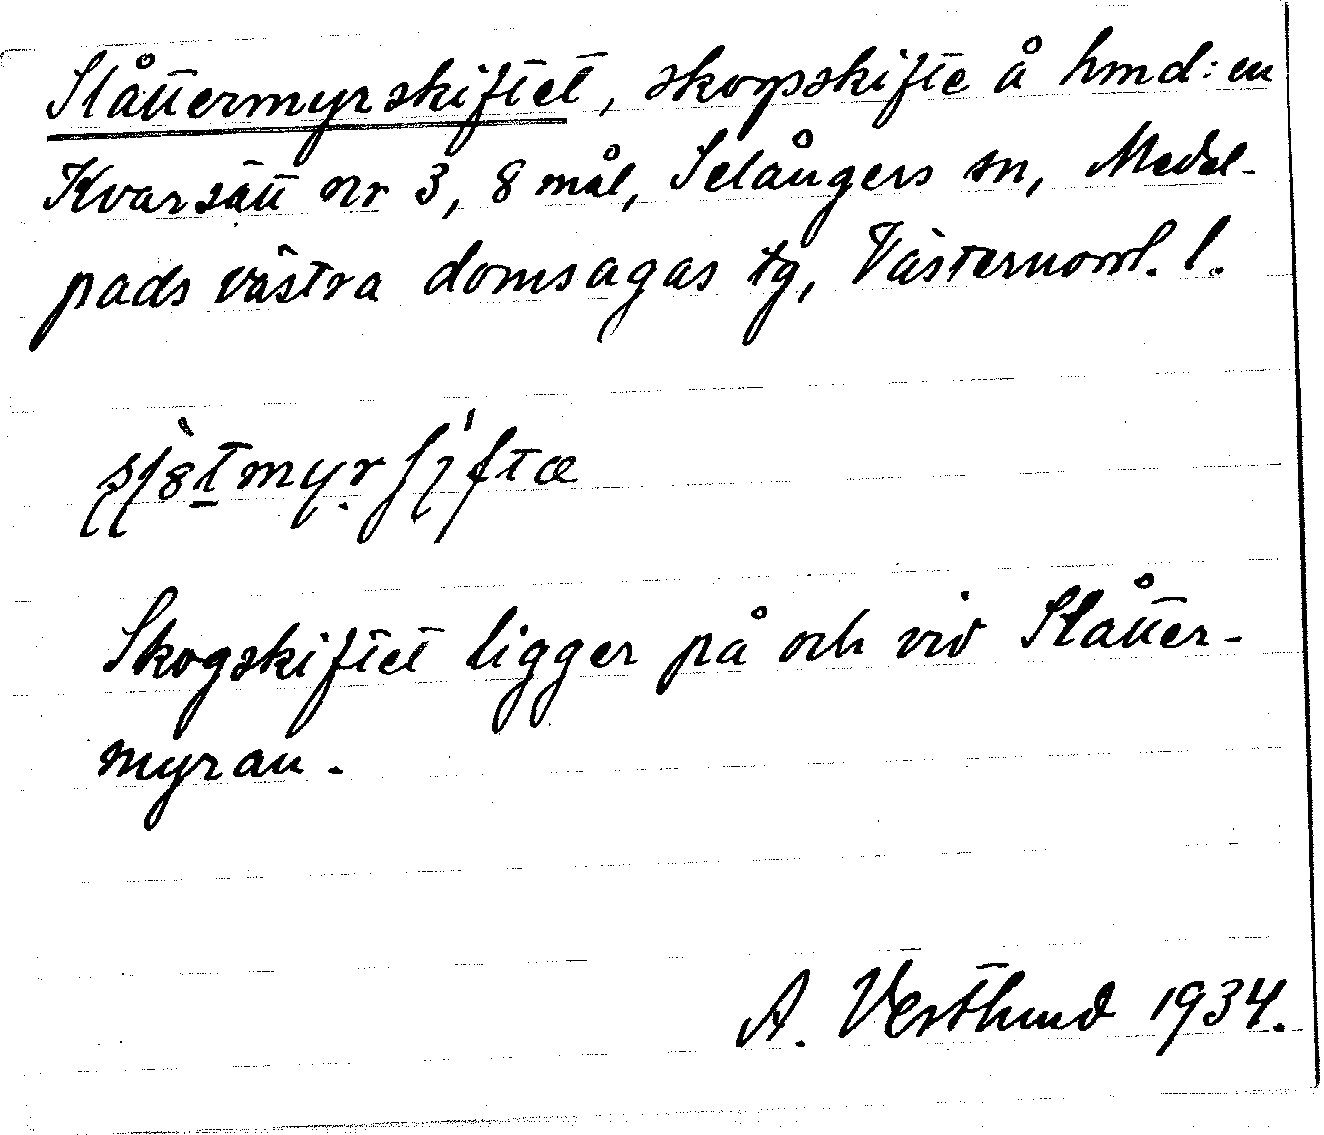 Slåttermyrskiftet, skogsskifte å hmd:en
Kvarsätt nr 3, 8 mål, Selångers sn, Medel-
pads västra domsagas tg, Västernorrl. l.
Skogskiftet ligger på och vid Slåtter-
myran.
A. Vestlund 1934.